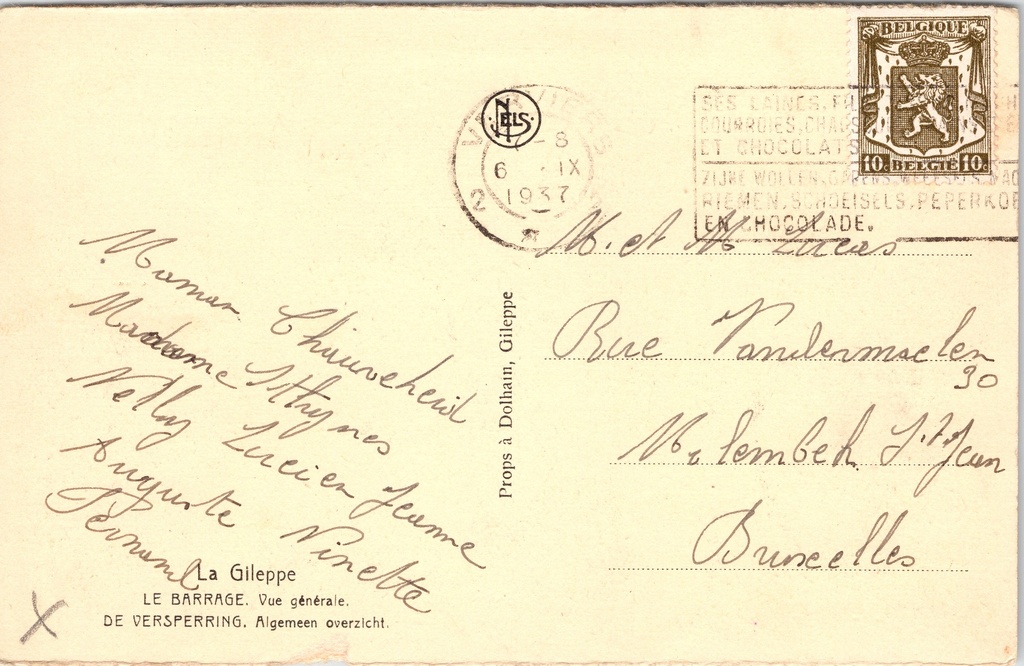 BELGIQUE
10c BELGIE 10c
NELS
2
-8
6 IX
1937
SES LAINES, FI
COURROIES, CHAUS
ET CHOCOLATS
ZIJNE WOLLEN, GARENS, WEEFSELS,
RIEMEN, SCHOEISELS, PEPERKOE
EN CHOCOLADE.
M. et M Lucas
Rue Vandermaelen
30
Molembek St Jean
Bruxelles
Props à Dolhain, Gileppe
Maman Chauveheid
Madame
Nelly Lucien Jeanne
Auguste Ninette
Fernand
La Gileppe
LE BARRAGE. Vue générale.
DE VERSPERRING. Algemeen overzicht.